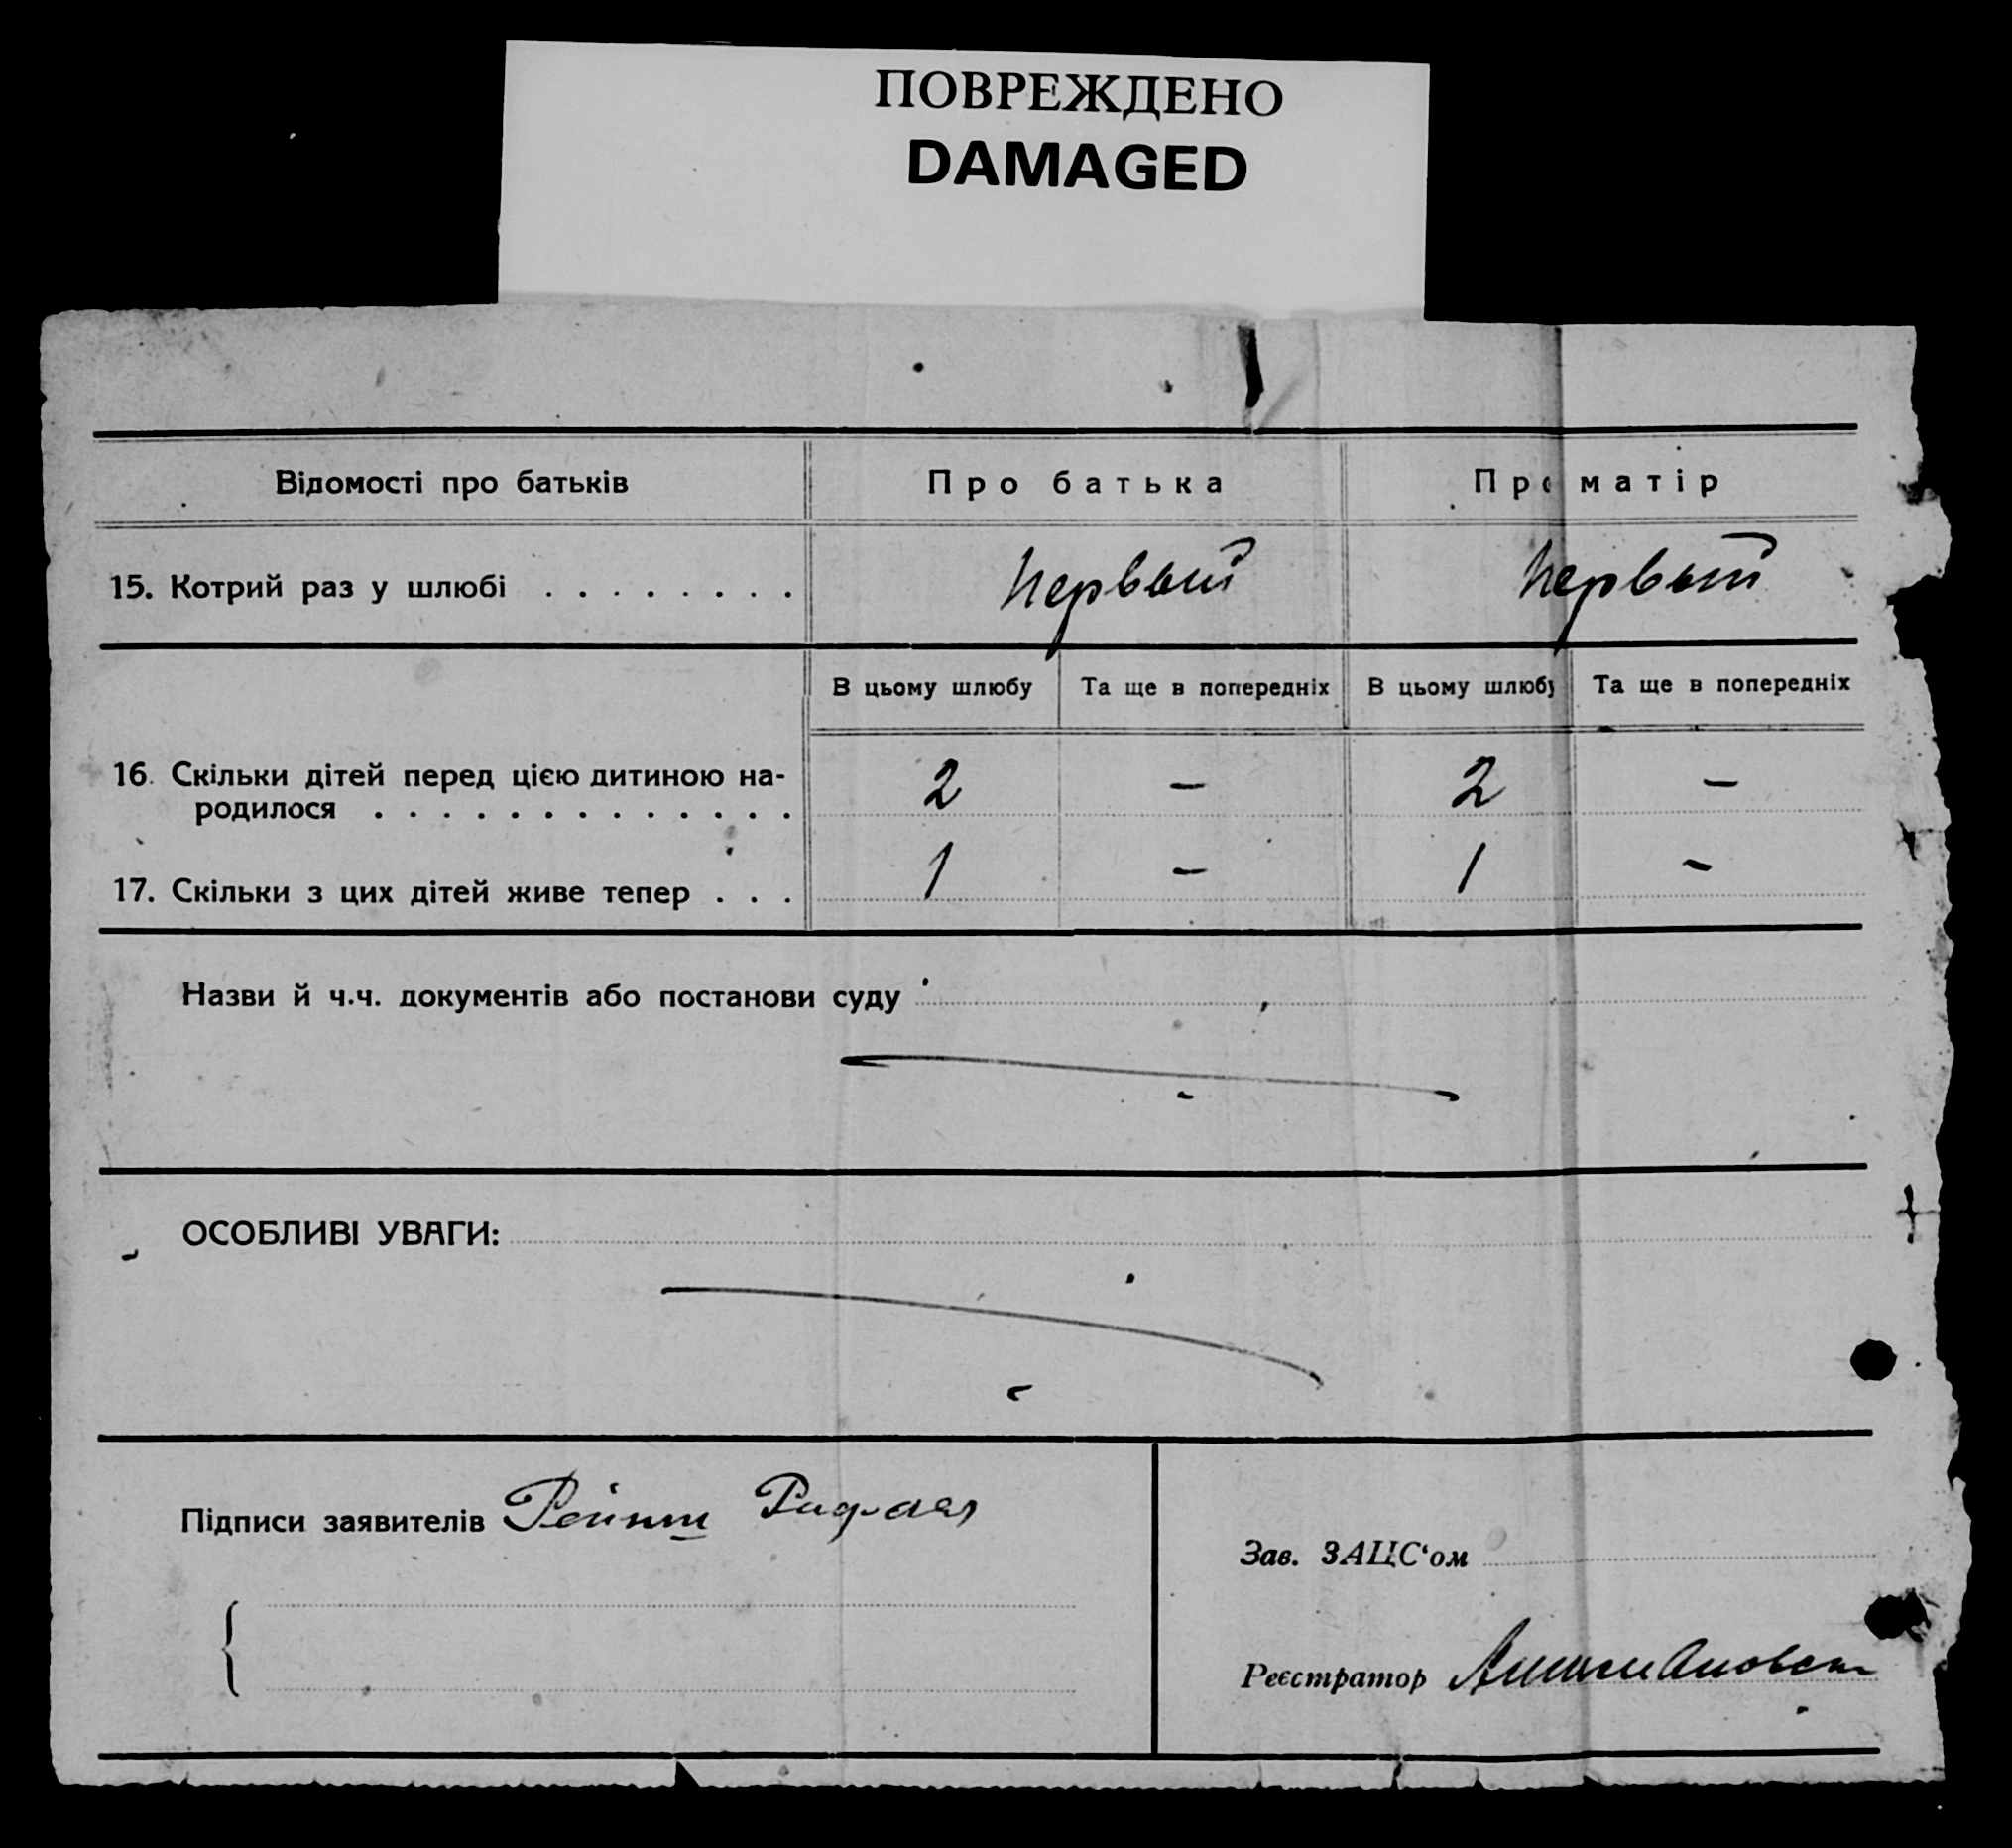 ПОВРЕЖДЕНО
DAMAGED
Відомості про батьків Про батька Про матір
15. Котрий раз у шлюбі . . . . . . . . Первый Первый
В цьому шлюбу Та ще в попередніх В цьому шлюбу Та ще в попередніх
16. Скільки дітей перед цією дитиною на- 2 – 2 –
родилося . . . . . . . . . . . . .
17. Скільки з цих дітей живе тепер . . . 1 – 1 –
Назви й ч.ч. документів або постанови суду
ОСОБЛИВІ УВАГИ:
Підписи заявителів
Зав. ЗАЦС‘ом
Реєстратор